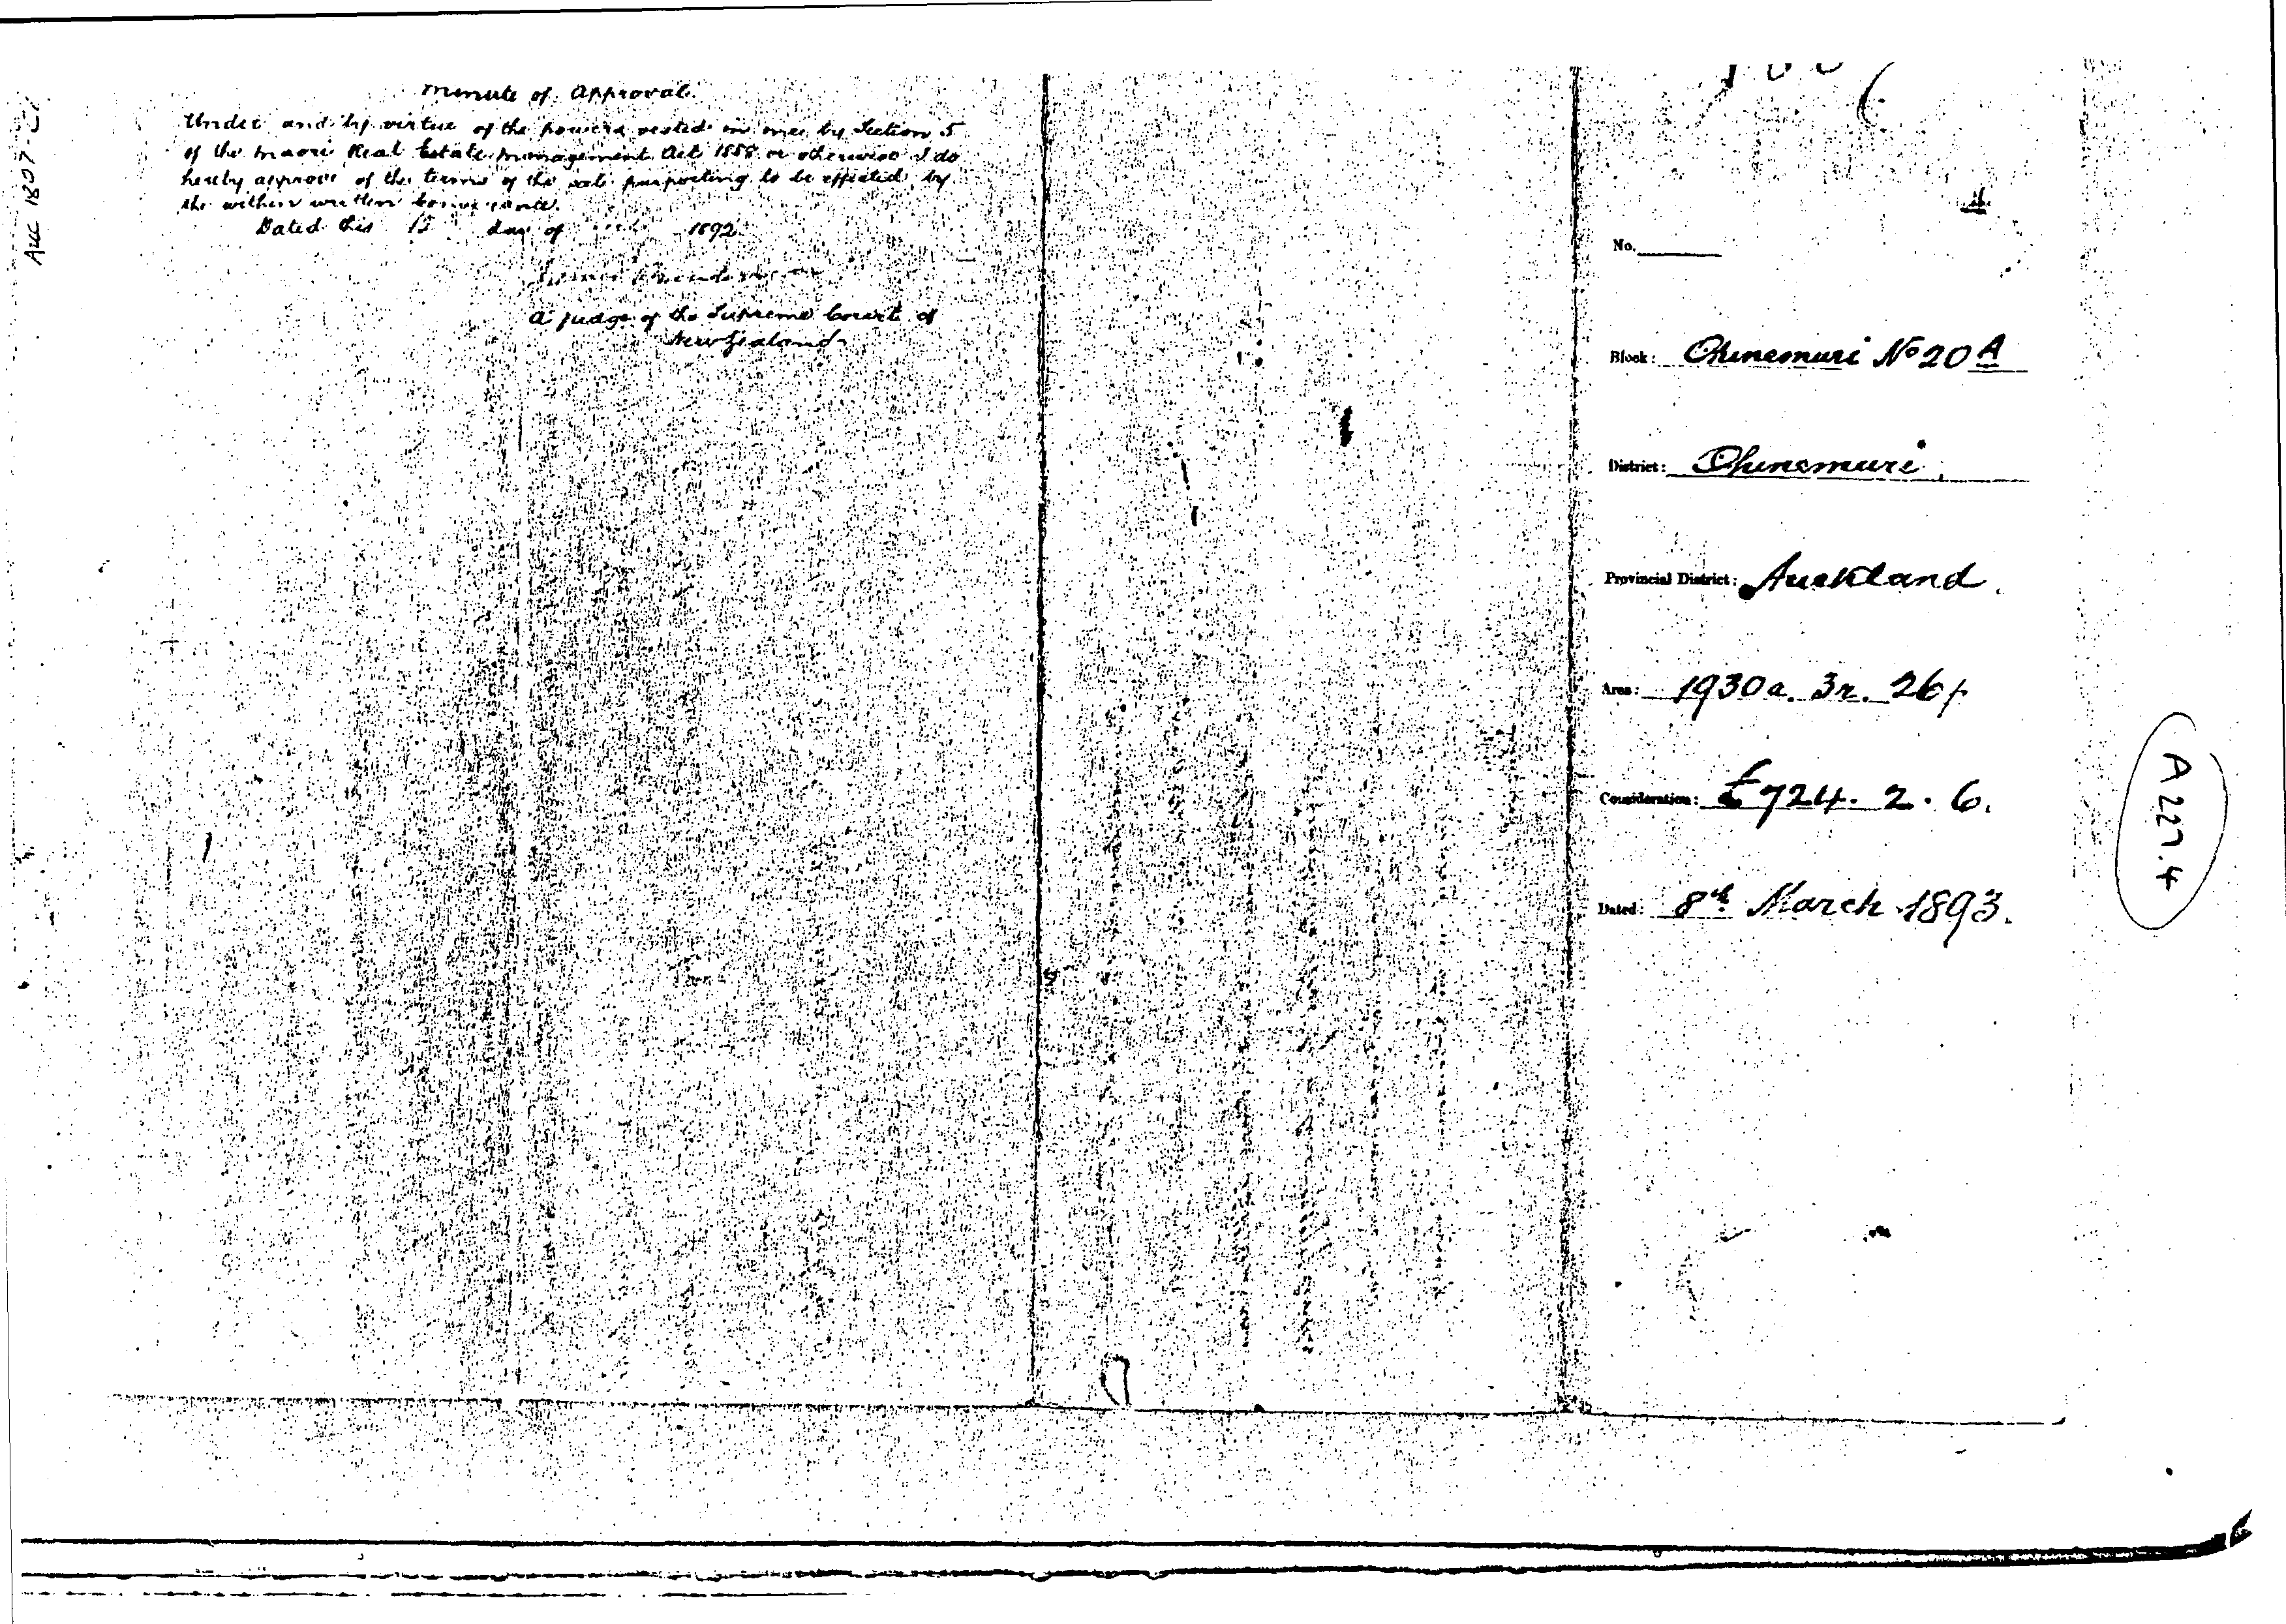 Minute of Approval.
Under and by virtue of the powers vested in me by Section 5
of the Maori Real Estate Management Act 1888 or otherwise I do
hereby approve of the terms of the sale purporting to be effected by
the within written conveyance.
Dated this 15 day of 1892
A judge of the Supreme Court of
New Zealand
No.
Block: Ohinemuri No 20 A
District: Ohinemuri
Provincial District: Auckland.
Area: 1930a. 3r. 26p
Consideration: £724. 2. 6.
Dated: 8th March 1893.
A 227.4
AUC 1807